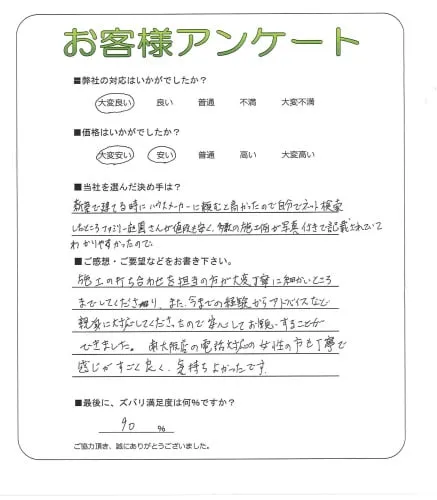 お客様アンケート
■弊社の対応はいかがでしたか？
大変良い 良い 普通 不満 大変不満
■価格はいかがでしたか？
大変安い 安い 普通 高い 大変高い
■当社を選んだ決め手は？
新築で建てる時にハウスメーカーに頼むと高かったので自分でネット検索
したところファミリー庭園さんが値段も安く、多数の施工例が写真付きで記載されていて
わかりやすかったので。
■ご感想・ご要望などをお書き下さい。
施工の打ち合わせを担当の方が大変丁寧に細かいところ
までしてくださり、また、今までの経験からアドバイスなど
親身に対応してくださったので安心してお願いすることが
できました。東大阪店の電話対応の女性の方も丁寧で
感じがすごく良く、気持ちよかったです。
■最後に、ズバリ満足度は何％ですか？
90 ％
ご協力頂き、誠にありがとうございました。